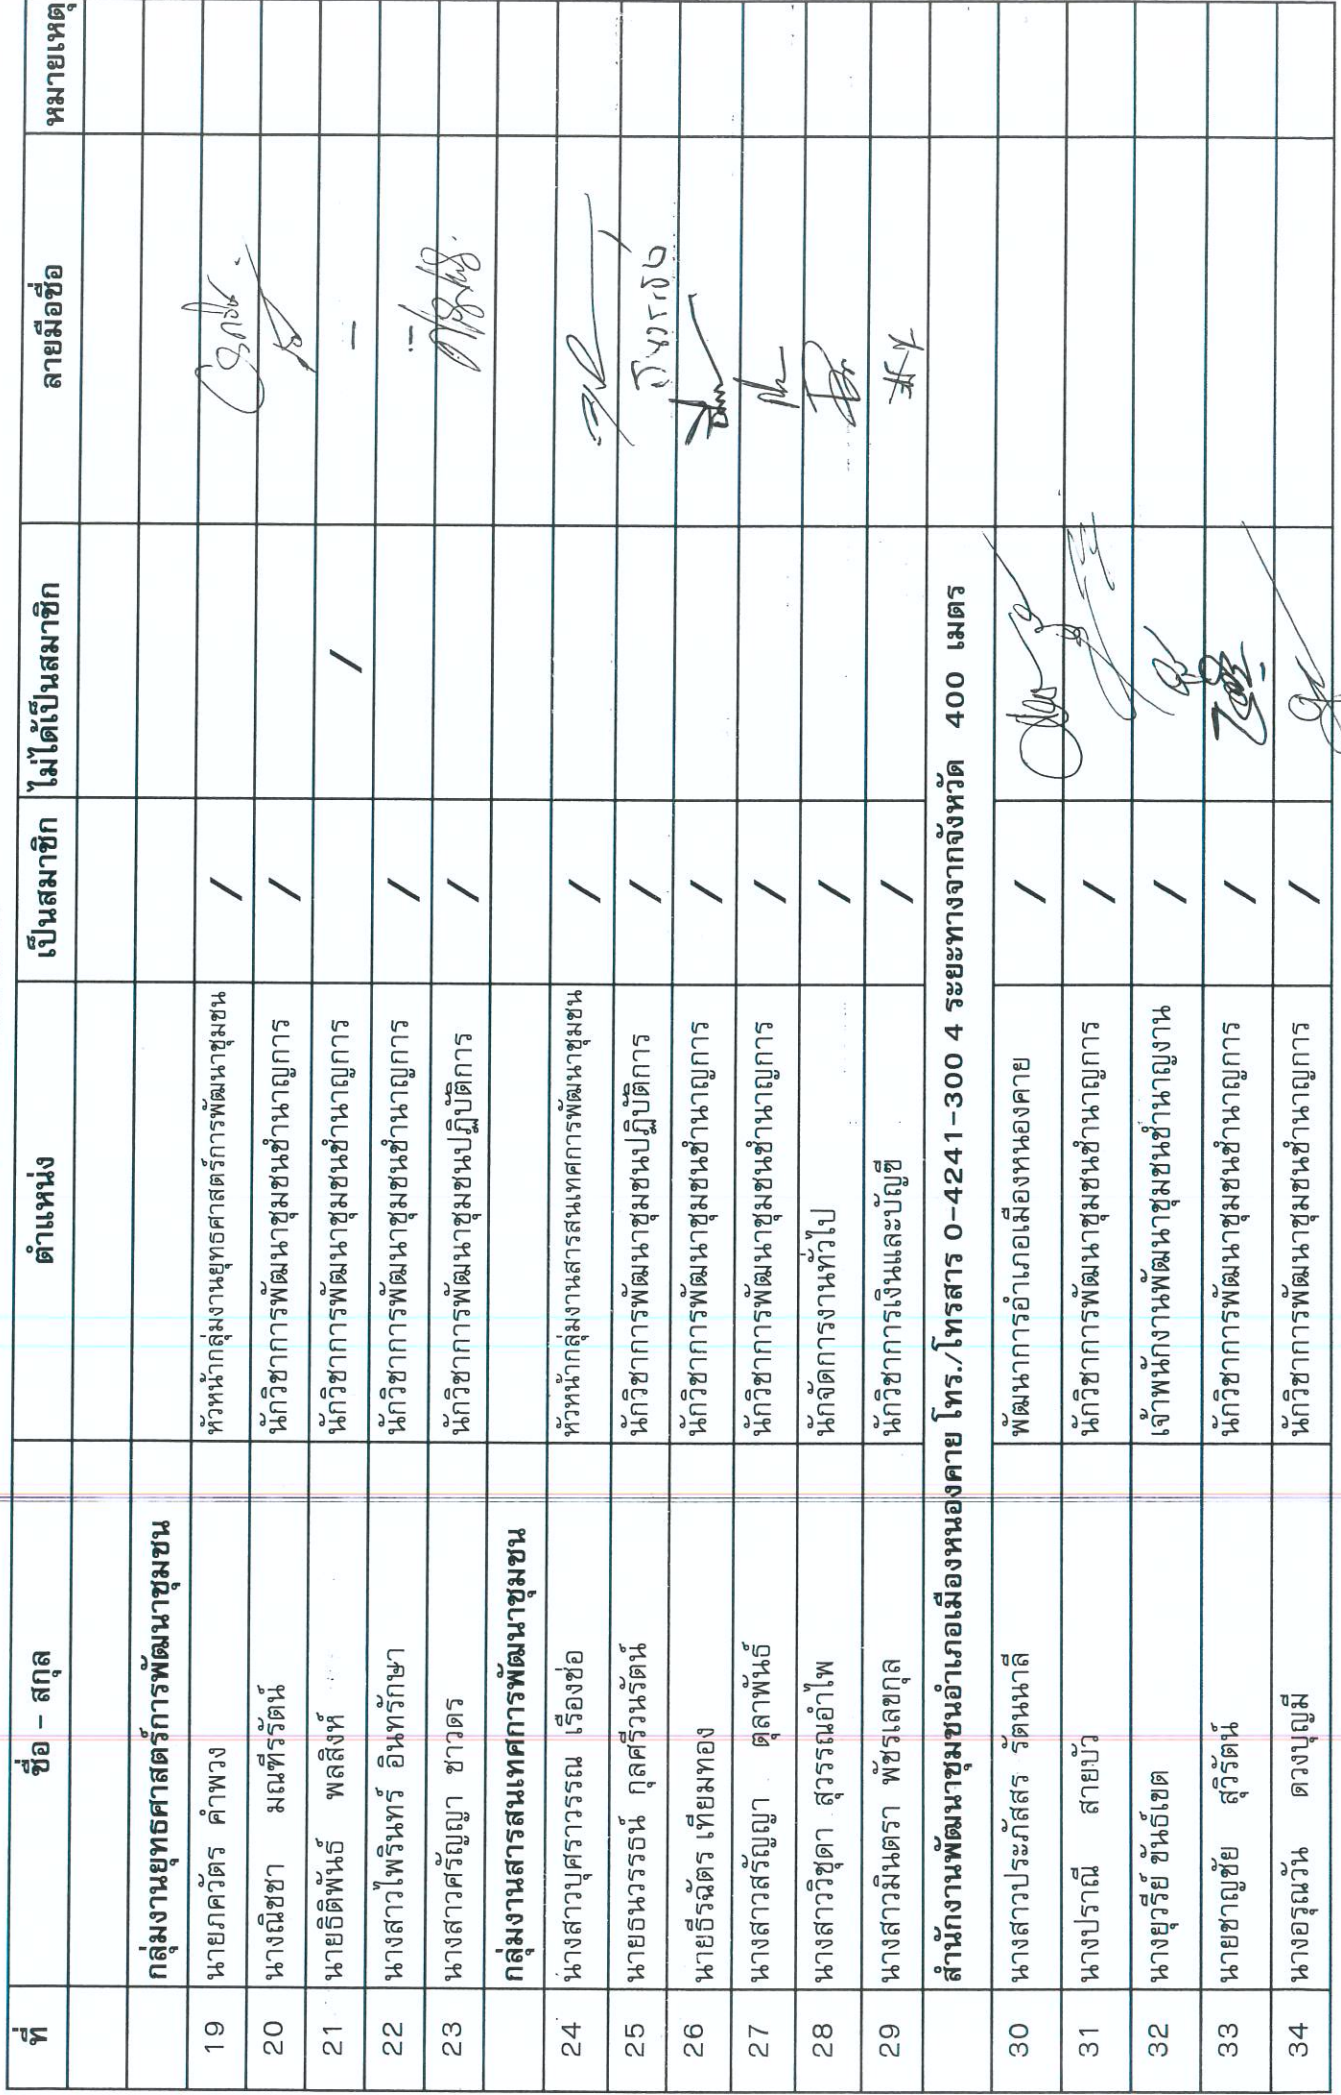 ที่ ชื่อ - สกุล ตำแหน่ง เป็นสมาชิก ไม่ได้เป็นสมาชิก ลายมือชื่อ หมายเหตุ
กลุ่มงานยุทธศาสตร์การพัฒนาชุมชน
19 นายภควัตร คำพวง หัวหน้ากลุ่มงานยุทธศาสตร์การพัฒนาชุมชน /
20 นางณิชชา มณฑีรรัตน์ นักวิชาการพัฒนาชุมชนชำนาญการ /
21 นายธิติพันธ์ พลสิงห์ นักวิชาการพัฒนาชุมชนชำนาญการ / -
22 นางสาวไพรินทร์ อินทรักษา นักวิชาการพัฒนาชุมชนชำนาญการ /
23 นางสาวศรัญญา ชาวดร นักวิชาการพัฒนาชุมชนปฏิบัติการ /
กลุ่มงานสารสนเทศการพัฒนาชุมชน
24 นางสาวบุศราวรรณ เรืองช่อ หัวหน้ากลุ่มงานสารสนเทศการพัฒนาชุมชน /
25 นายธนวรรธน์ กุลศรีวนรัตน์ นักวิชาการพัฒนาชุมชนปฏิบัติการ /
26 นายธีรฉัตร เทียมทอง นักวิชาการพัฒนาชุมชนชำนาญการ /
27 นางสาวสรัญญา ตุลาพันธ์ นักวิชาการพัฒนาชุมชนชำนาญการ /
28 นางสาววิชุดา สุวรรณอำไพ นักจัดการงานทั่วไป /
29 นางสาวมินตรา พัชรเลขกุล นักวิชาการเงินและบัญชี /
สำนักงานพัฒนาชุมชนอำเภอเมืองหนองคาย โทร./โทรสาร 0-4241-300 4 ระยะทางจากจังหวัด 400 เมตร
30 นางสาวประภัสสร รัตนนาลี พัฒนาการอำเภอเมืองหนองคาย /
31 นางปราณี สายบัว นักวิชาการพัฒนาชุมชนชำนาญการ /
32 นางยุวรีย์ ขันธ์เขต เจ้าพนักงานพัฒนาชุมชนชำนาญงาน /
33 นายชาญชัย สุวิรัตน์ นักวิชาการพัฒนาชุมชนชำนาญการ /
34 นางอรุณวัน ดวงบุญมี นักวิชาการพัฒนาชุมชนชำนาญการ /